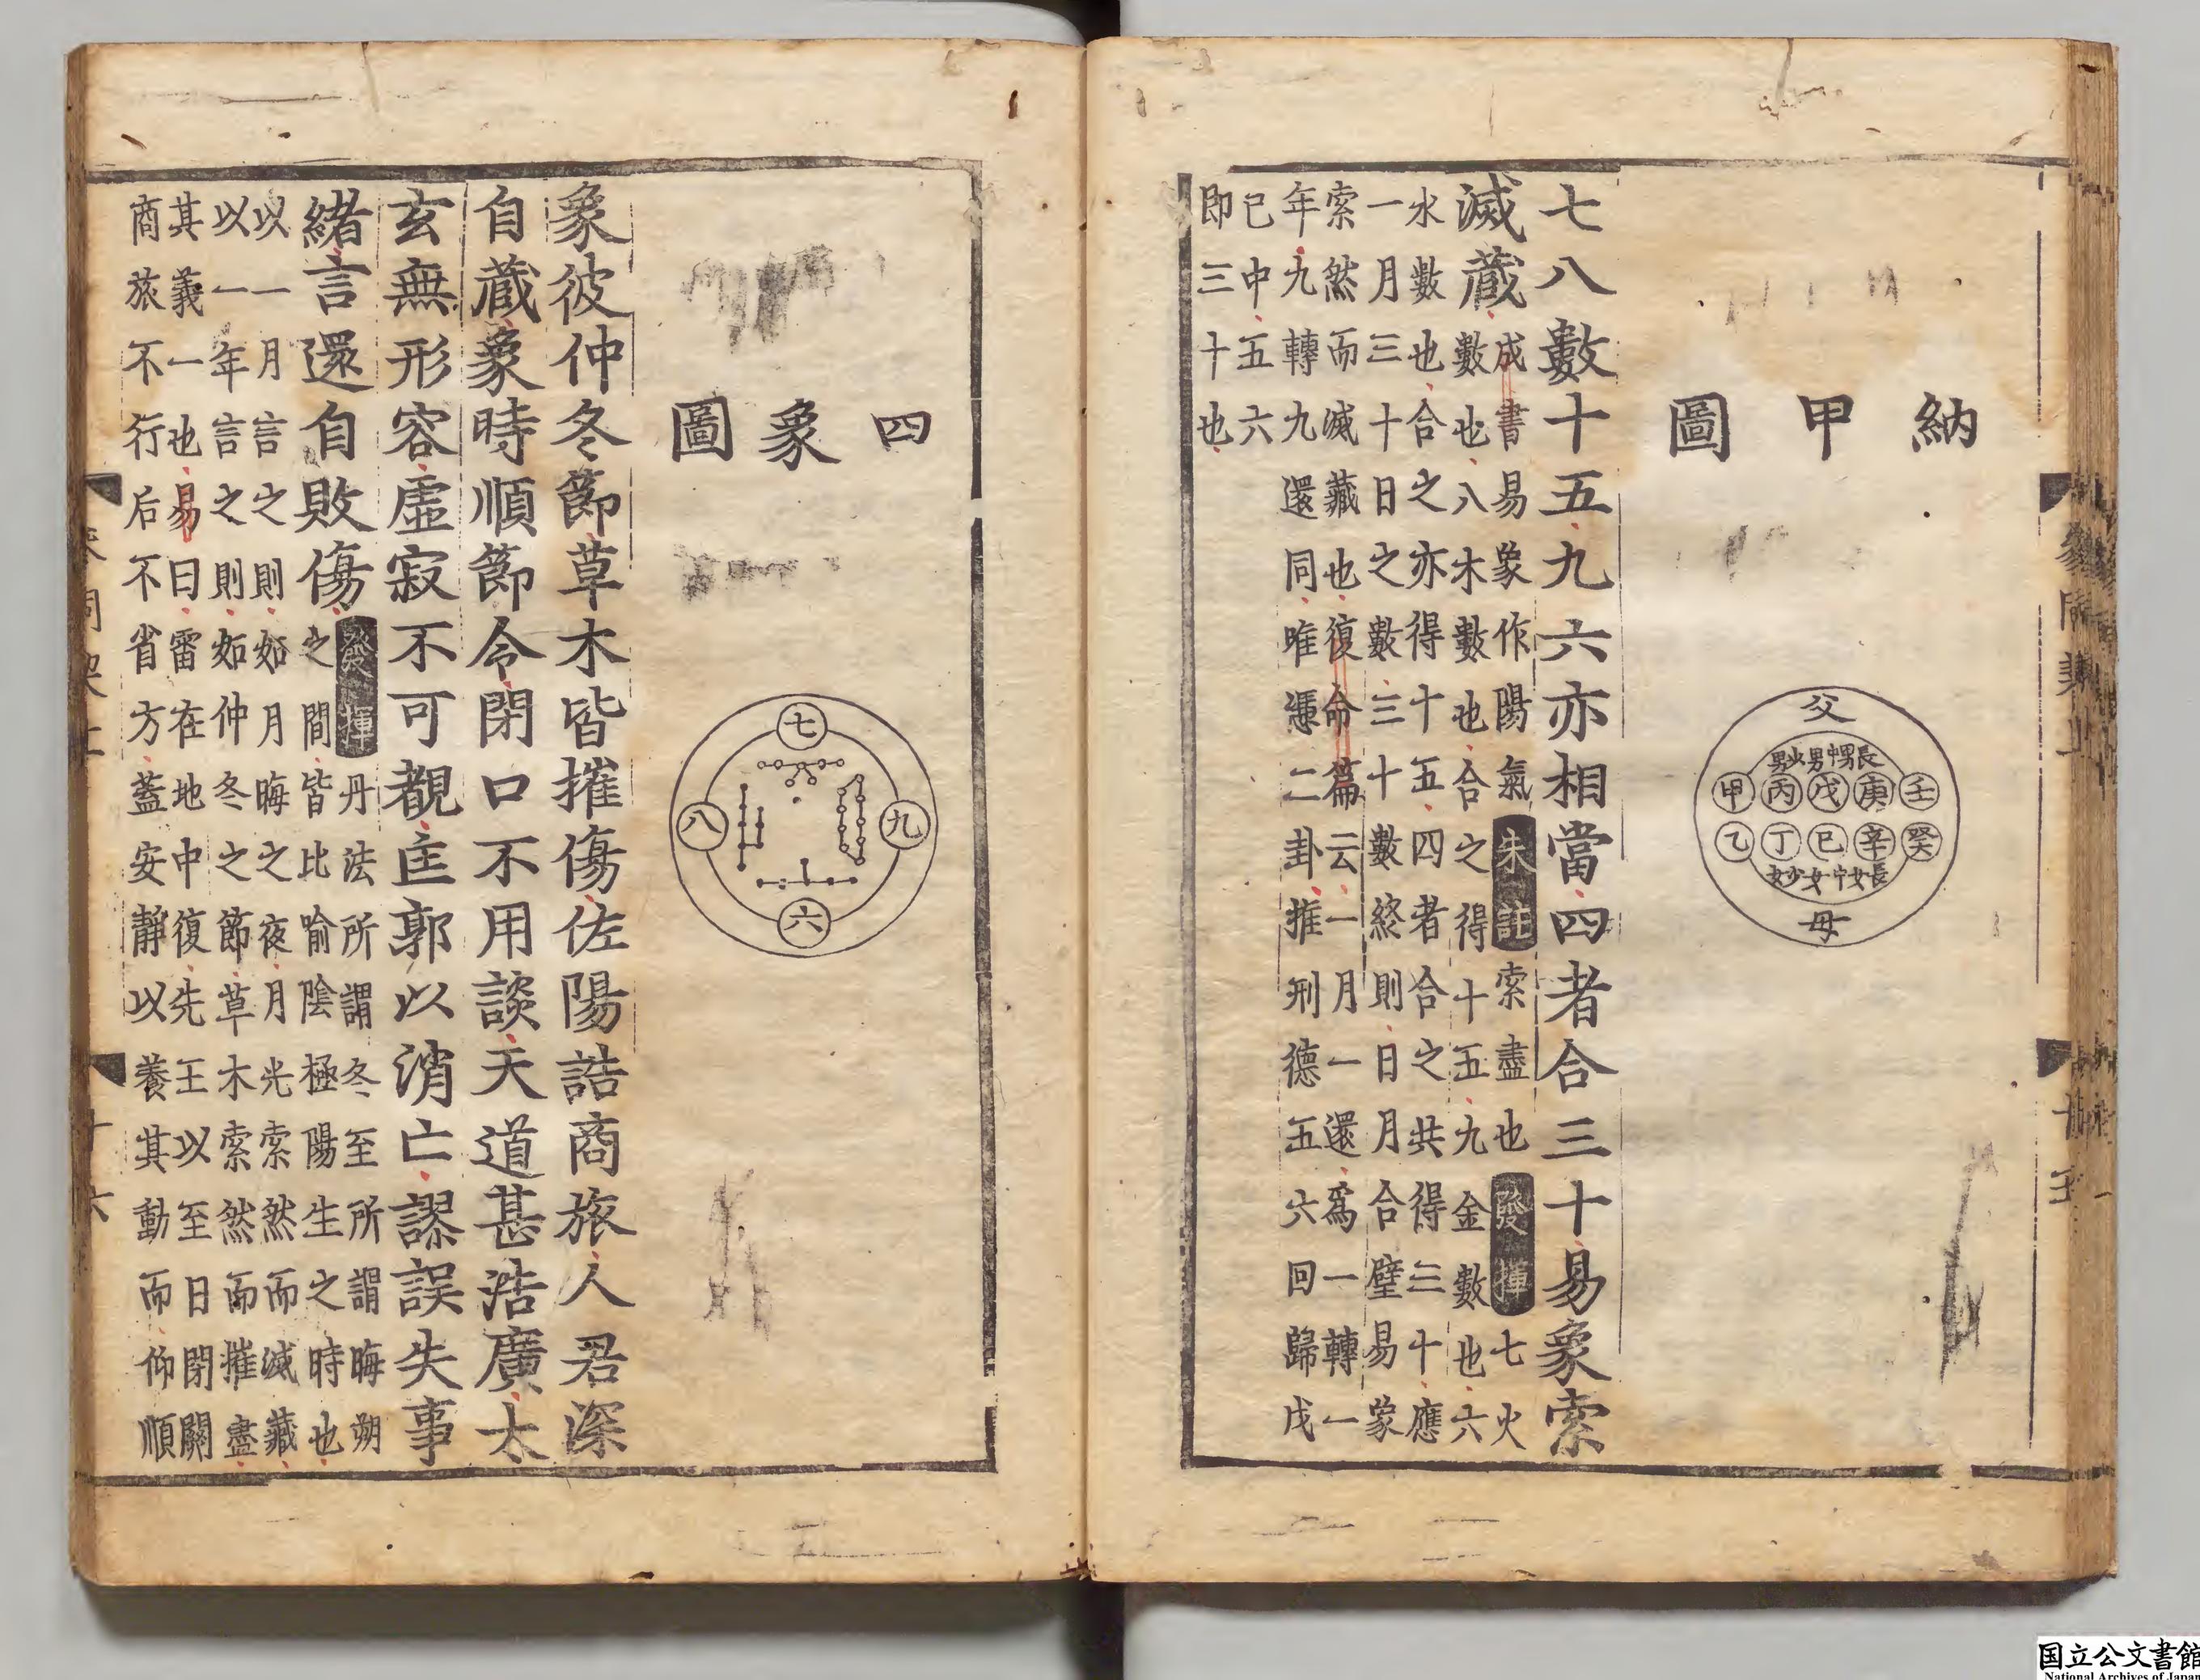 納甲圖
父
長男中男少男
壬庚戊丙甲
癸辛己丁乙
長女中女少女
母
七八數十五九六亦相當四者合三十易象索
滅藏
成書易象作陽氣朱註索盡也發揮七火
數也八木數也合之得十五九金數也六
水數也合之亦得十五四者合之共得三十應
一月三十日之數三十數終則日月合璧易象
索然而滅藏也復命篇云一月一還爲一轉一
年九轉九還同唯憑二卦推刑德五六回歸戊
已中五六
即三十也
四象圖
七
九
八
六
象彼仲冬節草木皆摧傷佐陽詰商旅人君深
自藏象時順節令閉口不用談天道甚浩廣太
玄無形容虛寂不可覩匡郭以消亡謬誤失事
緒言還自敗傷
發揮丹法所謂冬至所謂晦朔
之間皆比喻陰極陽生之時也
以一月言之則如月晦之夜月光索然而滅藏
以一年言之則如仲冬之節草木索然而摧盡
其義一也易曰雷在地中復先王以至日閉關
商旅不行后不省方蓋安靜以養其動而仰順
十六
国立公文書館
National Archives of Japan